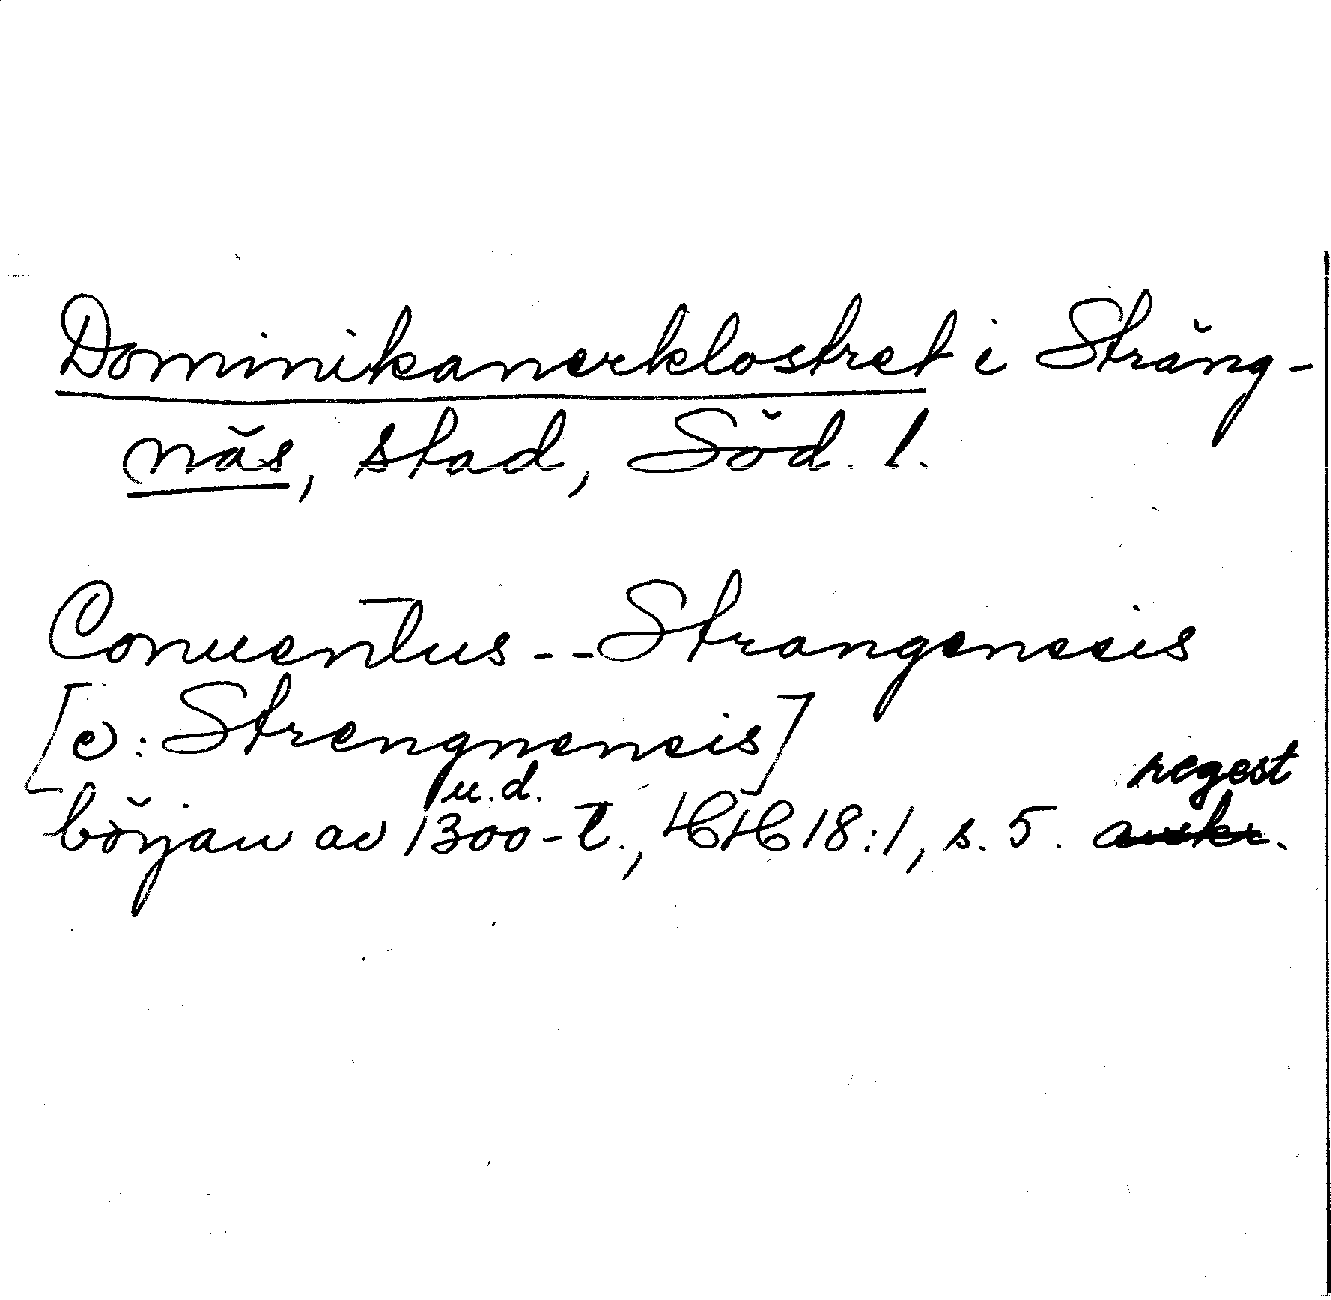 Dominikanerklostret i Sträng-
näs, stad, Söd. l.
Conuentus -- Strangensis
[e: Strengnensis]
u.d. regest
början av 1300-t., HH 18:1, s. 5. avskr.